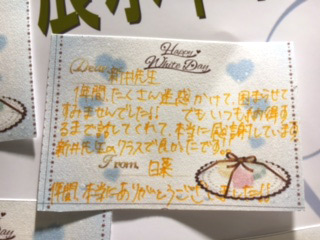 Happy
White Day
Dear.
新井先生
1年間、たくさん迷惑かけて、困らせて
すみませんでした!! でもいつも納得す
るまで話してくれて、本当に感謝しています
新井先生のクラスで良かったです!!
From.
日菜
1年間、本当にありがとうございました!!